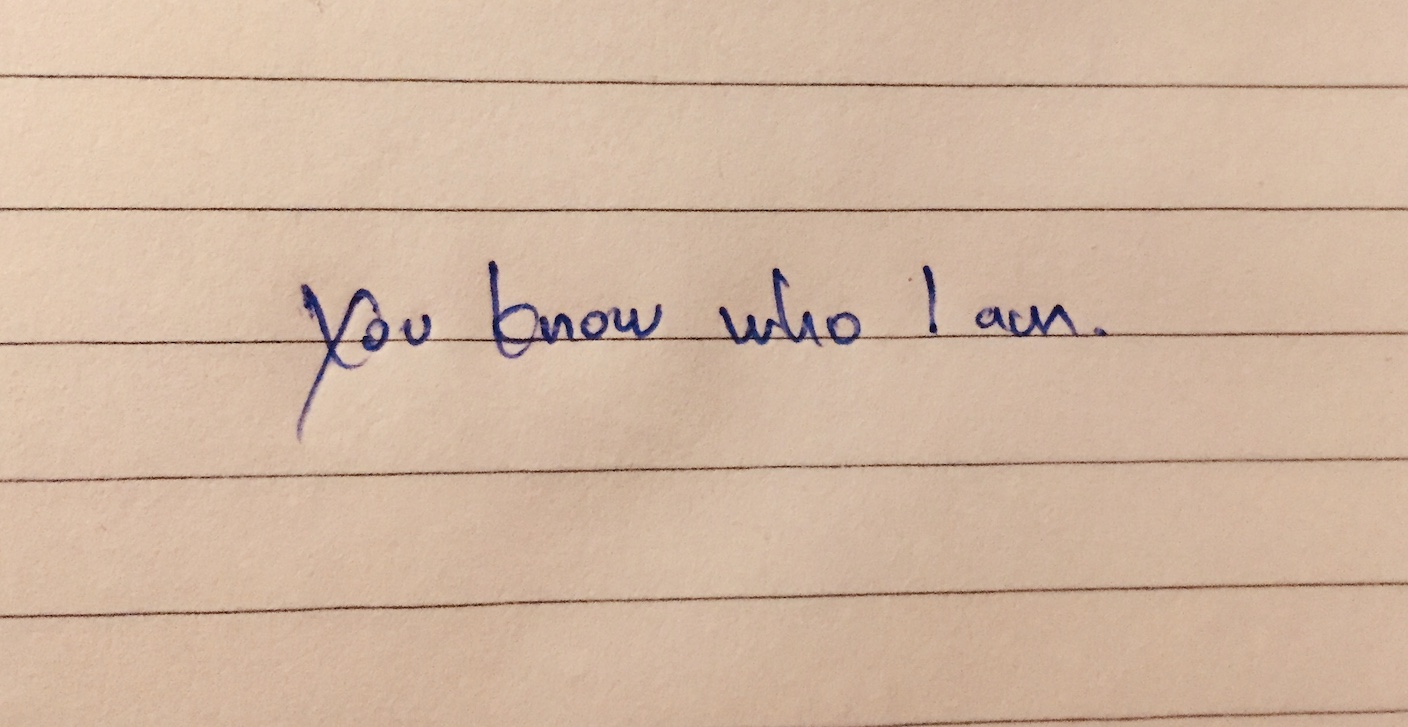 You know who I am.